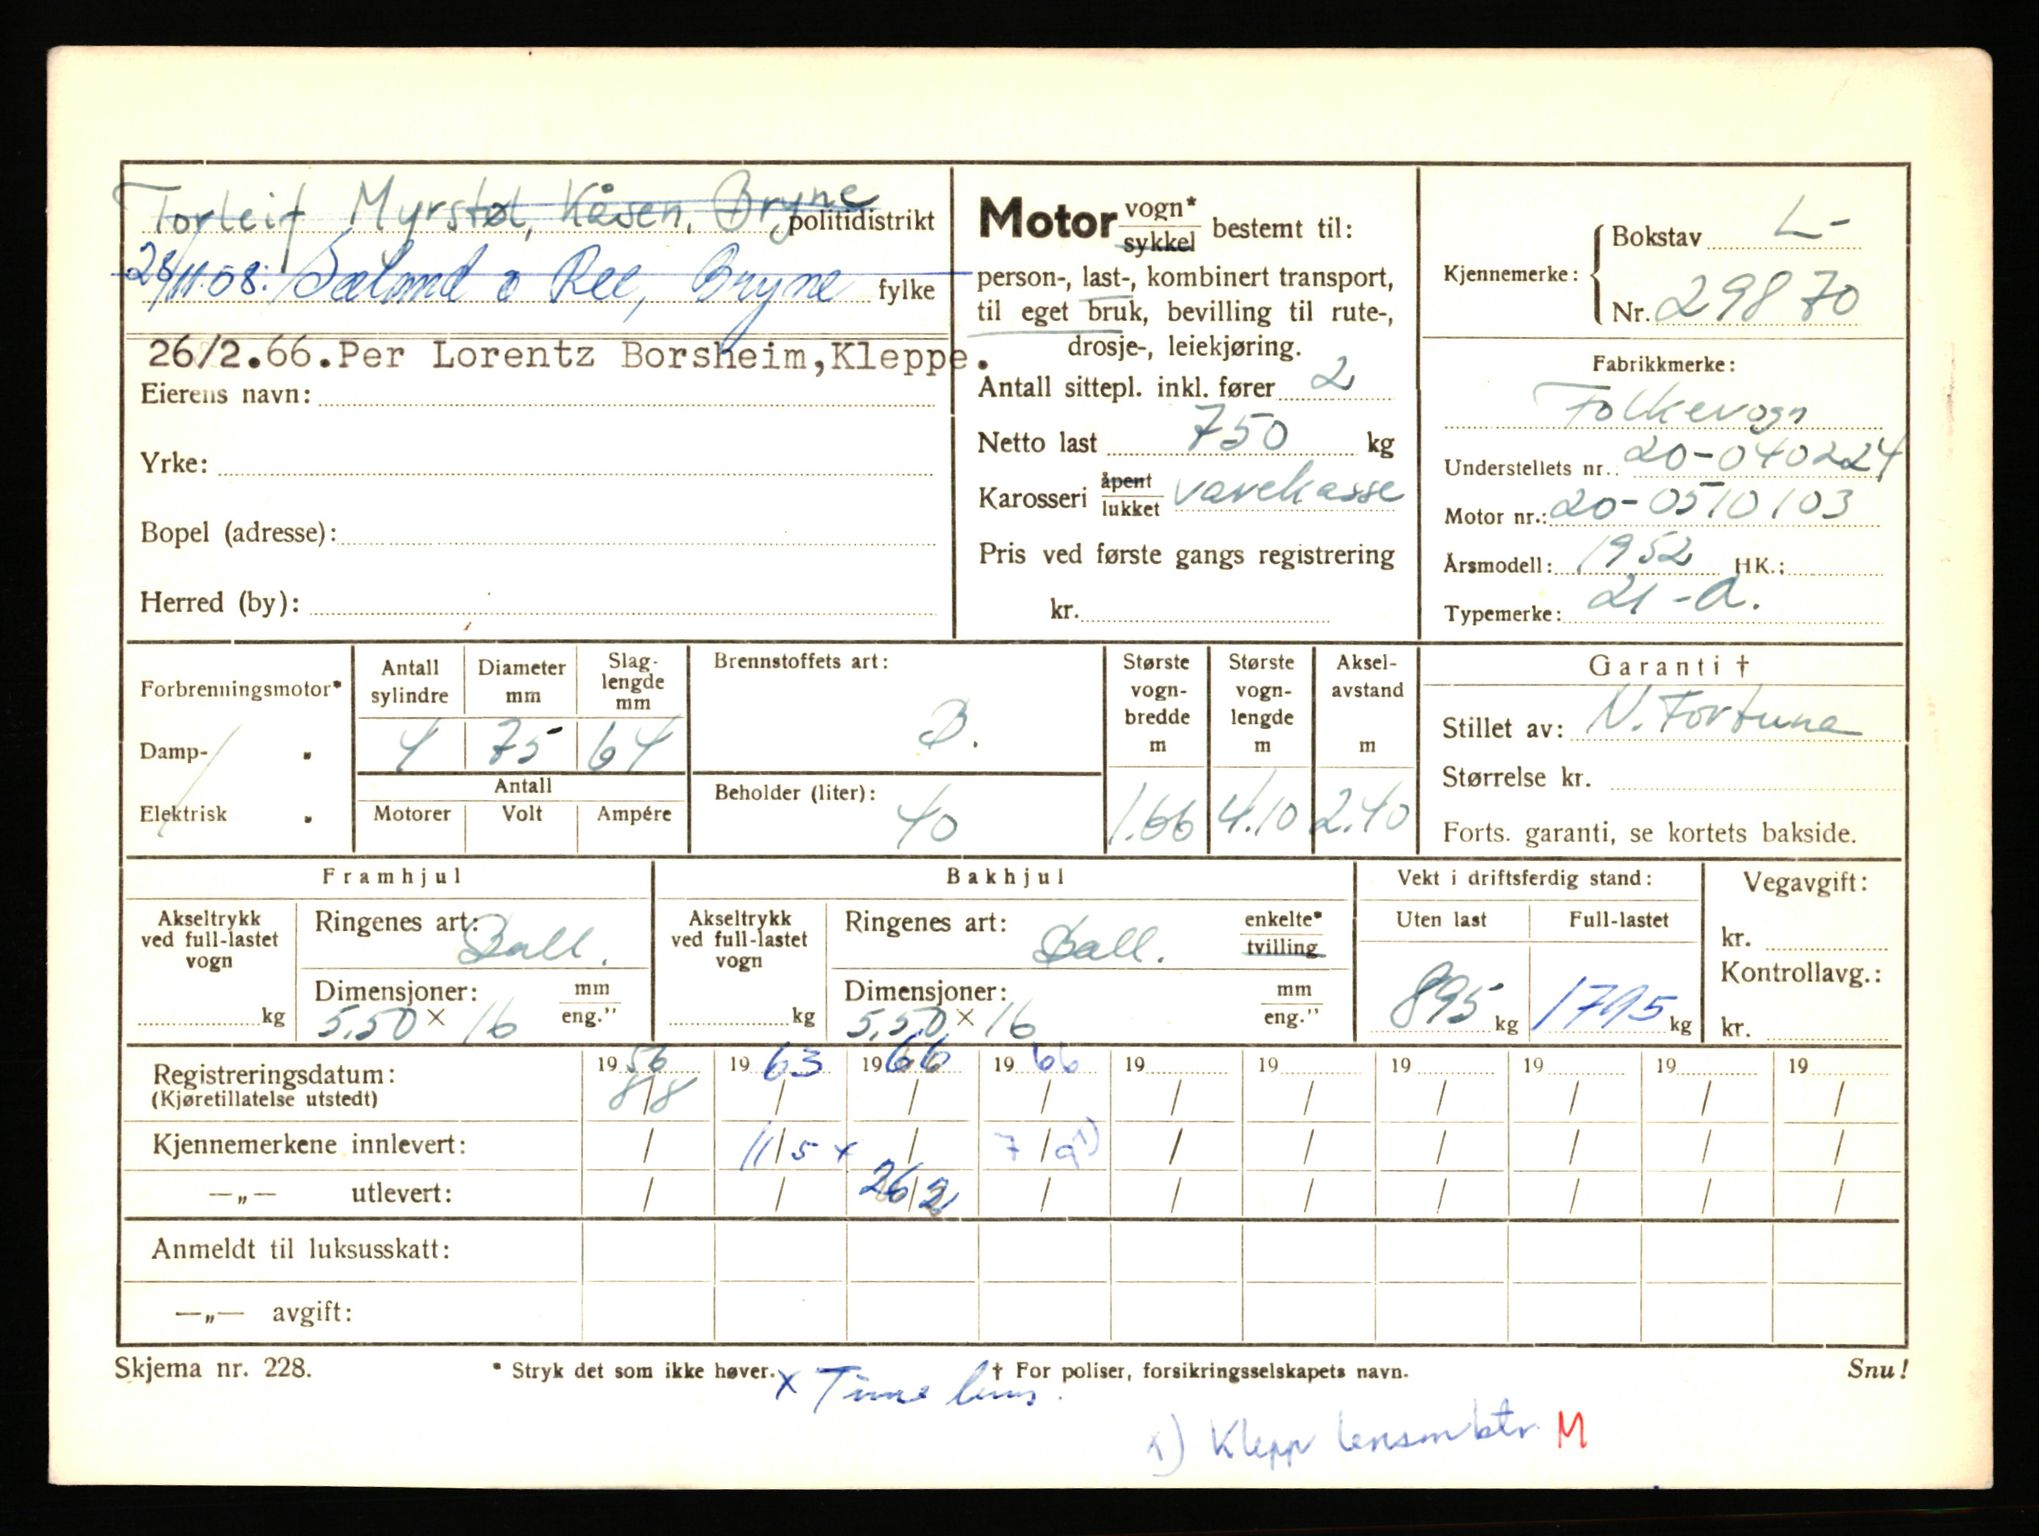 Torleif Myrstøl, Kåsen, Bryne politidistrikt
28/11.58: Sæland o Ree, Bryne fylke
26/2.66.Per Lorentz Borsheim,Kleppe.
Eierens navn:
Yrke:
Bopel (adresse):
Herred (by):
Motor vogn* sykkel bestemt til:
person-, last-, kombinert transport,
til eget bruk, bevilling til rute-,
drosje-, leiekjøring.
Antall sittepl. inkl. fører 2
Netto last 750 kg
Karosseri åpent lukket varekasse
Pris ved første gangs registrering
kr.
Kjennemerke: Bokstav L-
Nr. 29870
Fabrikkmerke:
Folkevogn
Understellets nr.: 20-040224
Motor nr.: 20-0510103
Årsmodell: 1952 HK.:
Typemerke: 21-a.
Forbrenningsmotor*
Damp- "
Elektrisk "
Antall sylindre
4
Diameter mm
75
Slag- lengde mm
64
Antall
Motorer Volt Ampére
Brennstoffets art:
B.
Beholder (liter):
40
Største vogn- bredde m
1.66
Største vogn- lengde m
4.10
Aksel- avstand m
2.40
Garanti †
Stillet av: N. Fortuna
Størrelse kr.
Forts. garanti, se kortets bakside.
Framhjul
Akseltrykk ved full-lastet vogn
kg
Ringenes art: Ball.
Dimensjoner: mm eng."
5.50 × 16
Bakhjul
Akseltrykk ved full-lastet vogn
kg
Ringenes art: Ball. enkelte* tvilling
Dimensjoner: mm eng."
5.50 × 16
Vekt i driftsferdig stand:
Uten last Full-lastet
895 kg 1795 kg
Vegavgift:
kr.
Kontrollavg.:
kr.
Registreringsdatum: 1956 1963 1966 1966 19 19 19 19 19 19
(Kjøretillatelse utstedt) 8/8 / / / / / / / / /
Kjennemerkene innlevert: / 11/5 x / 7/9 1) / / / / / /
—„— utlevert: / / 26/2 / / / / / / /
Anmeldt til luksusskatt:
—„— avgift:
Skjema nr. 228. * Stryk det som ikke høver. † For poliser, forsikringsselskapets navn. Snu!
x Time lens.
1) Klepp lensm ktr. M